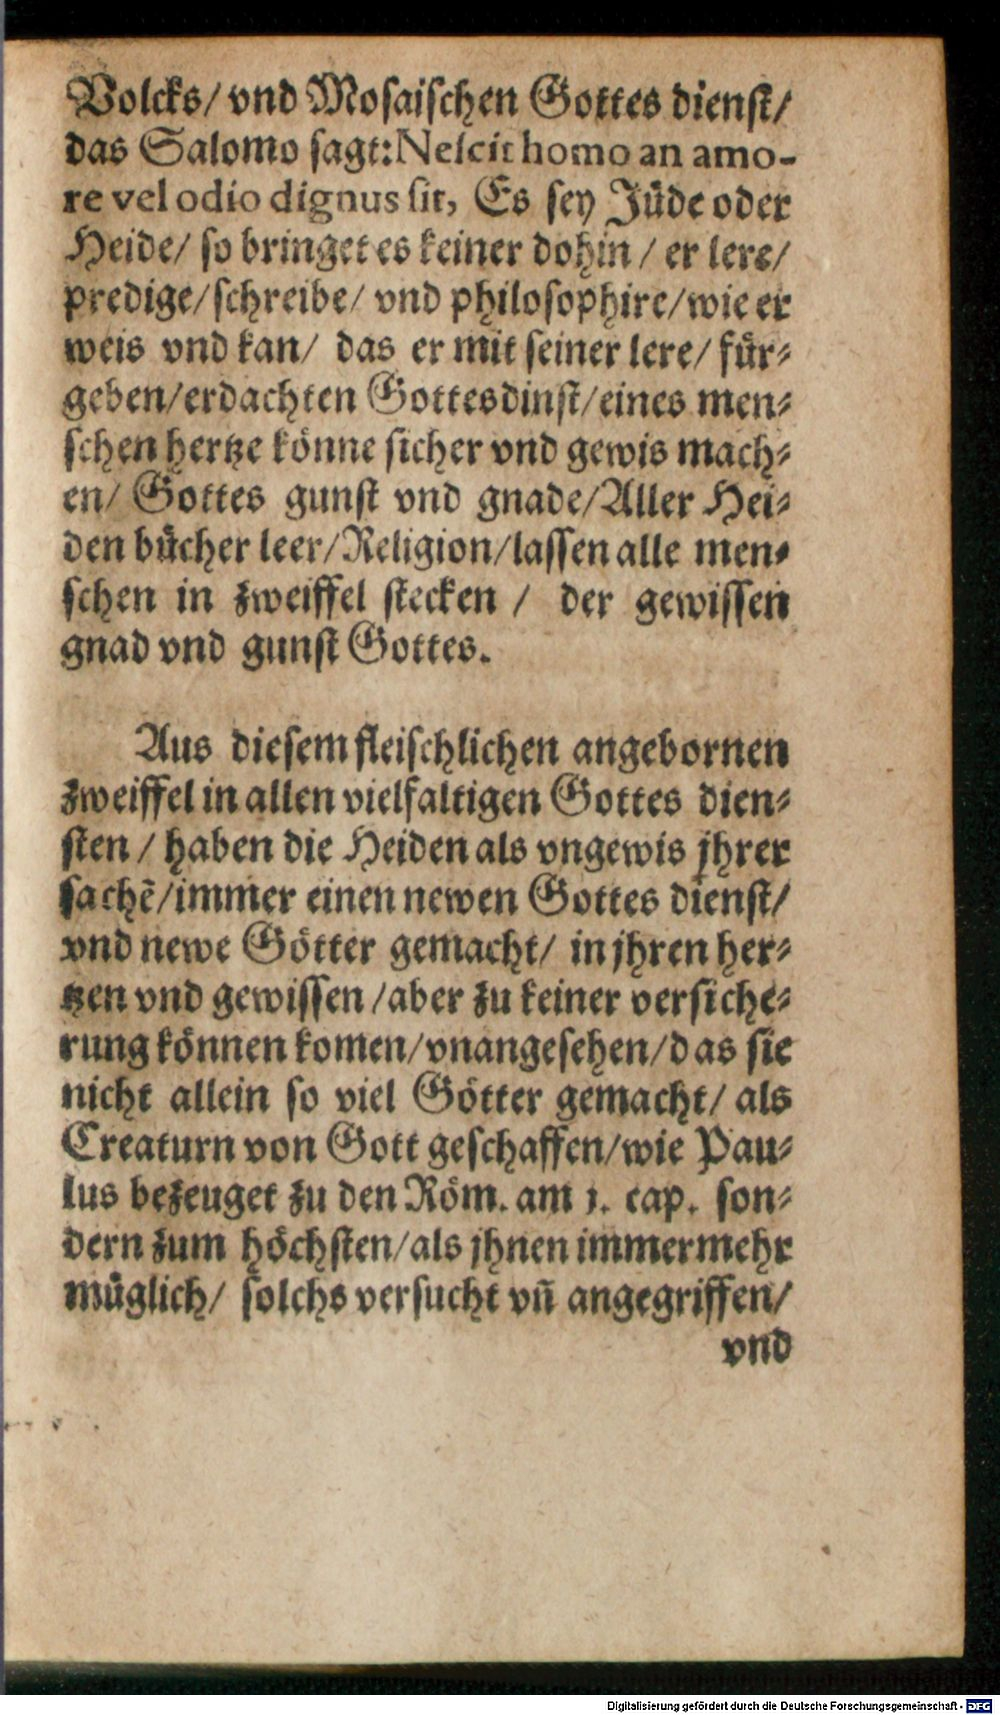 Volcks/ vnd Mosaischen Gottes dienst/
das Salomo sagt: Nescit homo an amo-
re vel odio dignus sit, Es sey Jüde oder
Heide/ so bringet es keiner dohin / er lere/
predige/ schreibe/ vnd philosophire/ wie er
weis vnd kan/ das er mit seiner lere/ für-
geben/ erdachten Gottesdinst/ eines men-
schen hertze könne sicher vnd gewis mach-
en/ Gottes gunst vnd gnade/ Aller Hei-
den bücher leer/ Religion/ lassen alle men-
schen in zweiffel stecken / der gewissen
gnad vnd gunst Gottes.
Aus diesem fleischlichen angebornen
zweiffel in allen vielfaltigen Gottes dien-
sten / haben die Heiden als vngewis jhrer
sachẽ/ immer einen newen Gottes dienst/
vnd newe Götter gemacht/ in jhren her-
tzen vnd gewissen / aber zu keiner versiche-
rung können komen/ vnangesehen/ das sie
nicht allein so viel Götter gemacht/ als
Creaturn von Gott geschaffen/ wie Pau-
lus bezeuget zu den Röm. am 1. cap. son-
dern zum höchsten/ als jhnen immermehr
müglich/ solchs versucht vñ angegriffen/
vnd
Digitalisierung gefördert durch die Deutsche Forschungsgemeinschaft - DFG